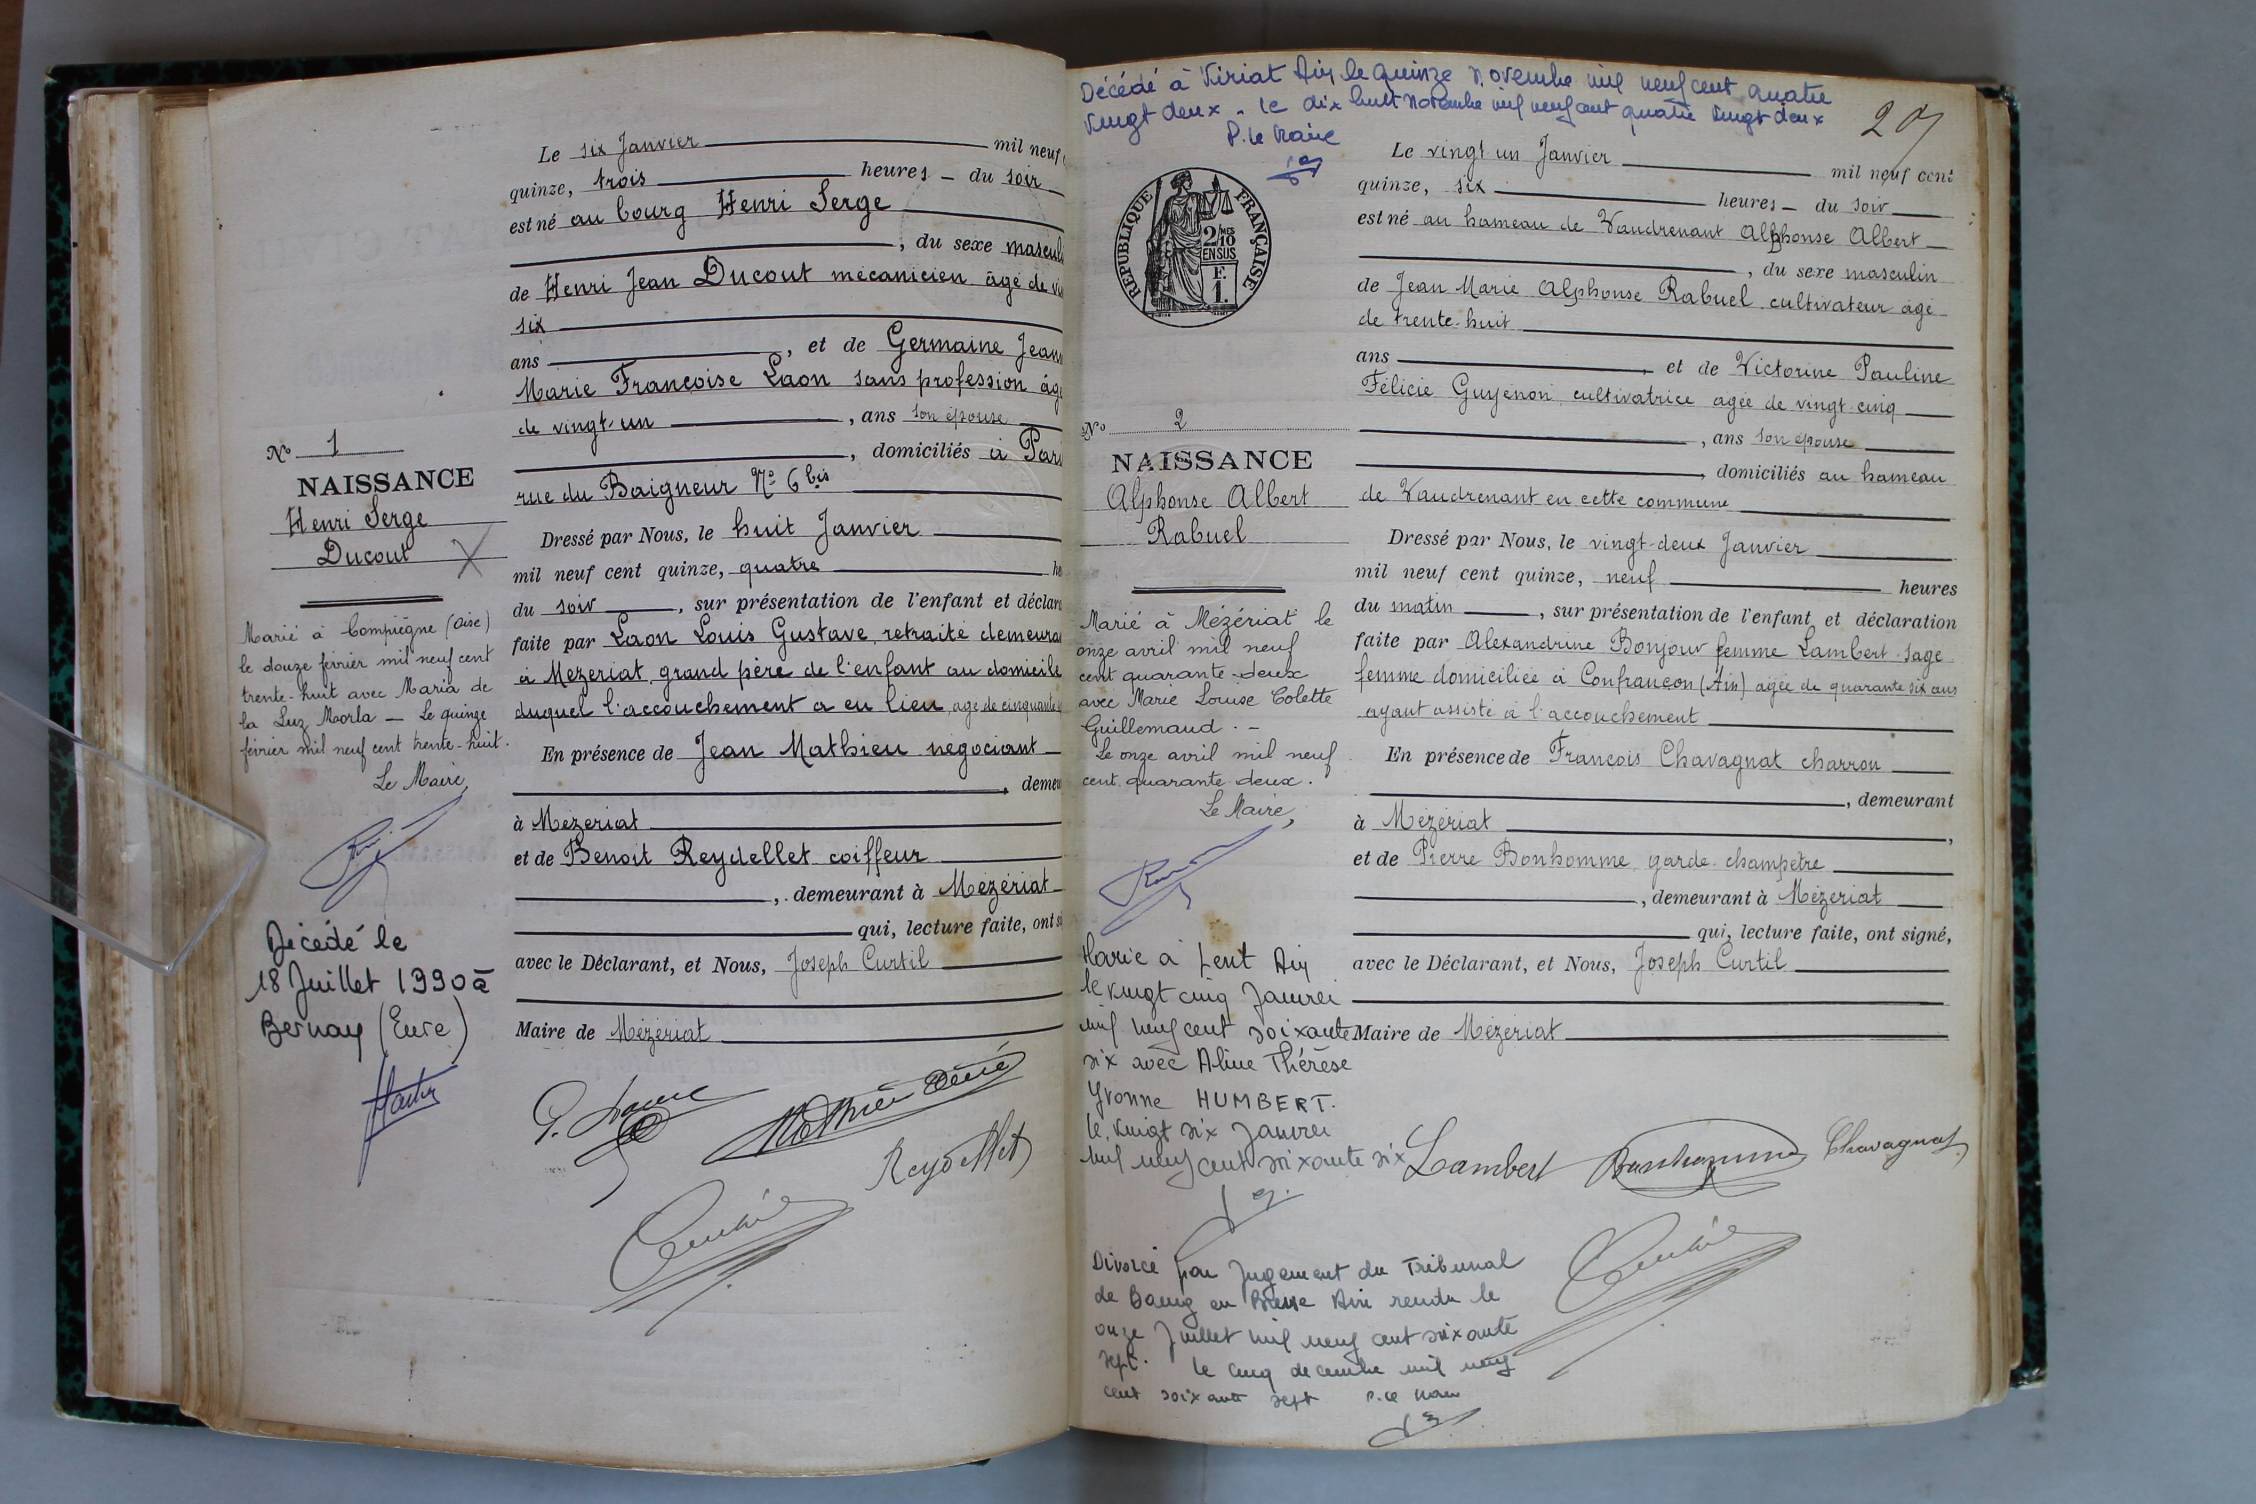 Le six Janvier mil neuf
quinze, trois heures - du soir
est né au bourg Henri Serge
, du sexe masculi
de Henri Jean Ducout mécanicien âgé de vi
six
ans , et de Germaine Jean
Marie Françoise Laon sans profession âg
de vingt-un , ans son épouse
, domiciliés à Pari
rue du Baigneur No 6 bis
No 1
NAISSANCE
Henri Serge
Ducout
Dressé par Nous, le huit Janvier
mil neuf cent quinze, quatre he
du soir , sur présentation de l'enfant et déclara
faite par Laon Louis Gustave, retraité demeura
à Mézériat, grand père de l'enfant au domicile
duquel l'accouchement a eu lieu, âgé de cinquante
En présence de Jean Mathieu négociant
, demeu
à Mézériat
et de Benoit Reydellet coiffeur
, demeurant à Mézériat
qui, lecture faite, ont si
avec le Déclarant, et Nous, Joseph Curtil
Maire de Mézériat
Marié à Compiègne (Oise)
le douze février mil neuf cent
trente-huit avec Maria de
la Luz Morla — Le quinze
février mil neuf cent trente-huit.
Le Maire,
Décédé le
18 Juillet 1990 à
Bernay (Eure)
Mathieu
Reydellet
Décédé à Viriat Ain le quinze novembre mil neuf cent quatre
vingt deux. le dix huit novembre mil neuf cent quatre vingt deux
P. le Maire
RÉPUBLIQUE FRANÇAISE
2/10 MES
EN SUS
F.
1.
Le vingt un Janvier mil neuf cent
quinze, six heures - du soir
est né au hameau de Vaudrenant Alphonse Albert
, du sexe masculin
de Jean Marie Alphonse Rabuel cultivateur âgé
de trente-huit
ans , et de Victorine Pauline
Félicie Guyénon cultivatrice agée de vingt-cinq
, ans son épouse
, domiciliés au hameau
de Vaudrenant en cette commune
No 2
NAISSANCE
Alphonse Albert
Rabuel
Dressé par Nous, le vingt-deux Janvier
mil neuf cent quinze, neuf heures
du matin , sur présentation de l'enfant et déclaration
faite par Alexandrine Bonjour femme Lambert sage
femme domiciliée à Confrançon (Ain) agée de quarante six ans
ayant assisté à l'accouchement
En présence de François Chavagnat charron
, demeurant
à Mézériat ,
et de Pierre Bonhomme garde champêtre
, demeurant à Mézériat
qui, lecture faite, ont signé,
avec le Déclarant, et Nous, Joseph Curtil
Maire de Mézériat
Marié à Mézériat le
onze avril mil neuf
cent quarante-deux
avec Marie Louise Colette
Guillemaud. -
Le onze avril mil neuf
cent quarante deux.
Le Maire,
Marié à Lent Ain
le vingt cinq Janvier
mil neuf cent soixante
six avec Aline Thérèse
Yvonne HUMBERT.
le vingt six Janvier
mil neuf cent soixante six
Lambert Bonhomme Chavagnat
Divorcé par Jugement du Tribunal
de Bourg en Bresse Ain rendu le
onze Juillet mil neuf cent soixante
sept. le cinq decembre mil neuf
cent soixante sept P. le Maire